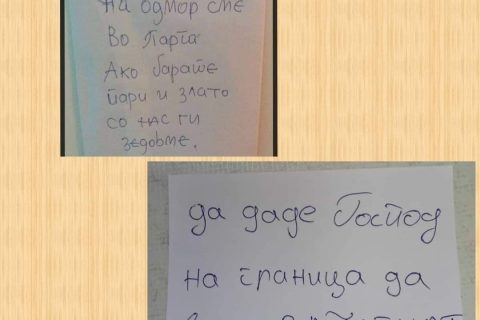 На одмор сме
Во Парга
Ако барате
пари и злато
со нас ги
зедовме.
да даде Господ
на граница да